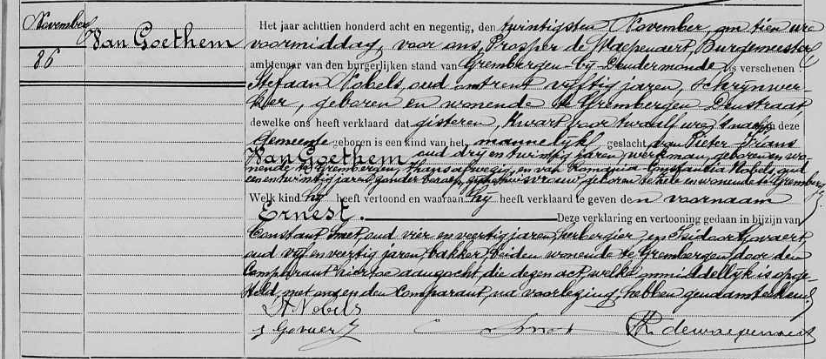 November
86
Van Goethem
Het jaar achttien honderd acht en negentig, den twintigsten November, om tien ure
voormiddag, voor ons, Prosper de Waepenaert, Burgemeester
ambtenaar van den burgerlijken stand van Grembergen-bij-Dendermonde is verschenen
Stefaan Nobels, oud omtrent vyftig jaren, schrynwer-
ker, geboren en wonende te Grembergen, straat
dewelke ons heeft verklaard dat gisteren, kwart voor twaalf ure 's nachts in deze
Gemeente geboren is een kind van het mannelyk geslacht van Pieter Frans
Van Goethem, oud dry en twintig jaren, werkman, geboren en wo-
nende te Grembergen, thans afwezig, en van Romania Constantia Nobels, oud
een en twintig jaren, zonder beroep, huisvrouw, geboren en wonende te Grembergen
Welk kind hy heeft vertoond en waaraan hy heeft verklaard te geven den voornaam
Ernest. Deze verklaring en vertooning gedaan in bijzijn van
Constant Smet, oud vier en veertig jaren, herbergier en Isidoor Govaert,
oud vyf en veertig jaren, bakker, beiden wonende te Grembergen door den
Comparant hiertoe aangezocht, die dezen act, welke onmiddellyk is opge-
steld, met ons en den Comparant, na voorlezing, hebben geteekend.
St Nobels
J Govaert Smet de Waepenaert